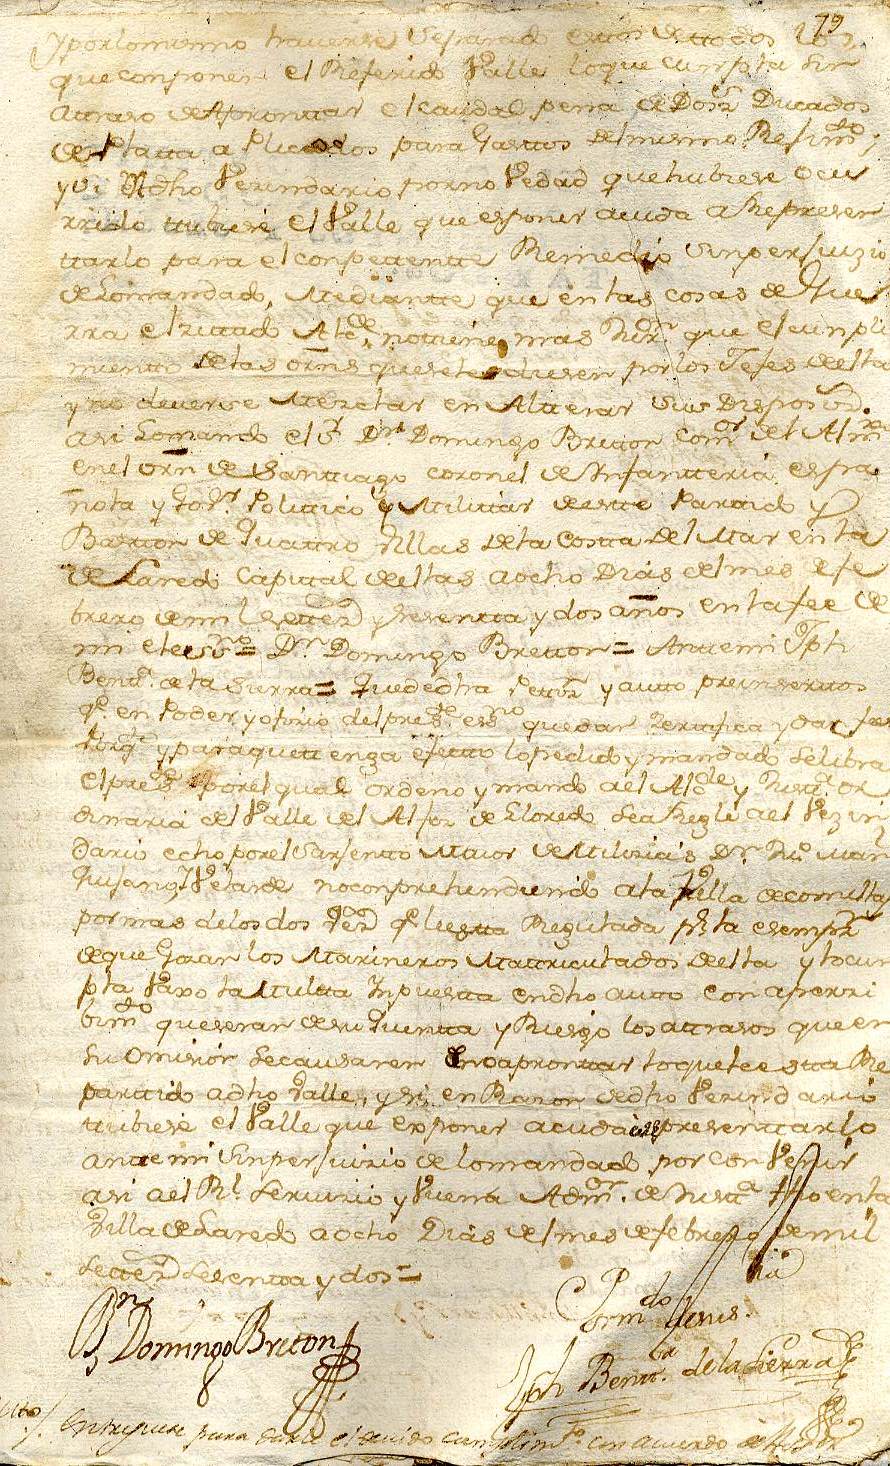 79
y por lo mismo haverse separado de todos los
que componen el Referido Valle lo que cumpla sin
atraso de Aprontar el caudal pena de Dosz.s Ducados
de Platta aplicados para Gasttos del mismo Rejim.to,
y si dho Vezindario por no Vedad que hubiese ocu
rrido ttubiese el Valle que esponer acuda a Represen
ttarlo para el conpetente Remedio sin perjuizio
de lo mandado, Mediantte que en las cosas de Gue
rra el zittado Alc.de, no ttiene mas que el cunpli
mientto de las orns que se le diesen por los Jefes de ella
y no deverse Mezclar en Altterar sus Disposiz.s.
asi lo mando el S.r D.n Domingo Bretton Com.or del Alm.
en el orn de Santtiago coronel de Ynfantteria espa
ñola y Gov.r Polittico y Militar de este Parttido y
Baston de Quattro Villas de la Costta del Mar en la
de Laredo Capittal de ellas a ocho Dias del mes de fe
brero de mil settez.s y sesentta y dos años en la fee de
mi el es.no = D.n Domingo Bretton = Antte mi Jph
Bent.a de la Sierra = Que de dha Pettiz.n y autto preinserttos
q.e en Poder y ofizio del pres.te es.no quedan zerttifica y da fee
Por q.e y para que ttenga efectto lo pedido y mandado se libra
el pres.te por el qual ordeno y mando a el Alc.de y Justt.a or
dinaria del Valle del Alfoz de Lloredo se aRegle a el Vezin
dario echo por el Sarjentto Maior de Milizias D.n
Quijano Velarde no conprehendiendo a la Villa de Comillas
por mas de los dos Vez.s q.e lleva Regulada p.r la esempz.n
de que Gozan los Marineros Mattriculados de ella y lo cun
pla Vaxo la Multta Ynpuestta en dho autto con aperzi
bim.to que seran de su Quentta y Riesgo los attrasos que en
su omision se causaren en no aprontar lo que le estta Re
parttido a dho Valle, y si en Razon de dho Vezindario
ttubiese el Valle que exponer acuda a Representtarlo
antte mi sin perjuizio de lo mandado por conVenir
asi a el R.l serbizio y Vuena Adm.on de Justt.a fho en la
Villa de Laredo a ocho Dias del mes de febrero de mil
settez.s sesentta y dos =
D.n Domingo Breton
Por m.do de su s.ria
Jph Bent.a de la Sierra
Autto / para darle el devido cumplim.to con acuerdo de